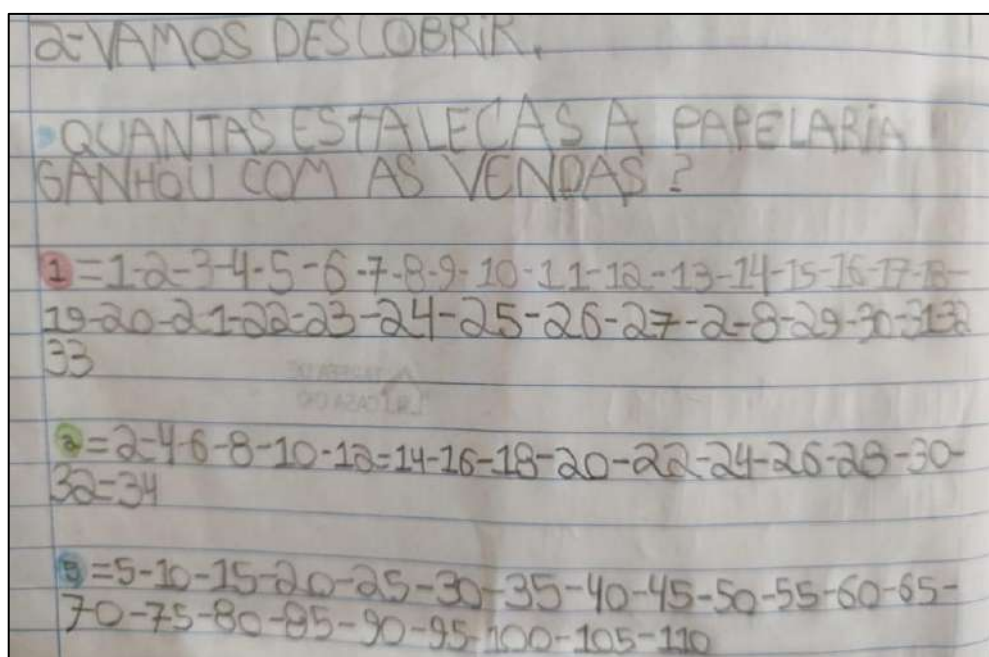 2-VAMOS DESCOBRIR.
QUANTAS ESTALECAS A PAPELARIA
GANHOU COM AS VENDAS?
1=1-2-3-4-5-6-7-8-9-10-11-12-13-14-15-16-17-18-
19-20-21-22-23-24-25-26-27-2-8-29-30-31-32
33
2=2-4-6-8-10-12=14-16-18-20-22-24-26-28-30-
32-34
5=5-10-15-20-25-30-35-40-45-50-55-60-65-
70-75-80-85-90-95-100-105-110